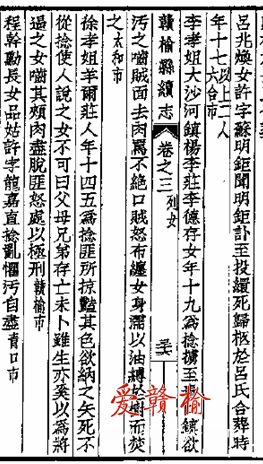 呂兆煥女許字蘇明鉅聞明鉅訃至投繯死歸柩於呂氏合葬時
年十七以上二人六合市
李孝姐大沙河鎮楊李莊李德存女年十九為捻擄至鎮欲
贛榆縣續志 卷之三 列女
污之嚙賊面去肉罵不絕口賊怒布纏女身濡以油縛於樹而焚
之太和市
徐孝姐羊爾莊人年十四五為捻匪所掠豔其色欲納之矢死不
從捻使人說之女不可曰父母兄弟存亡未卜雖生亦奚以為將
逼之女嚙其頰肉盡脫匪怒處以極刑贛榆市
程幹勳長女品姑許字龍嘉直捻亂懼污自盡青口市
爱赣榆